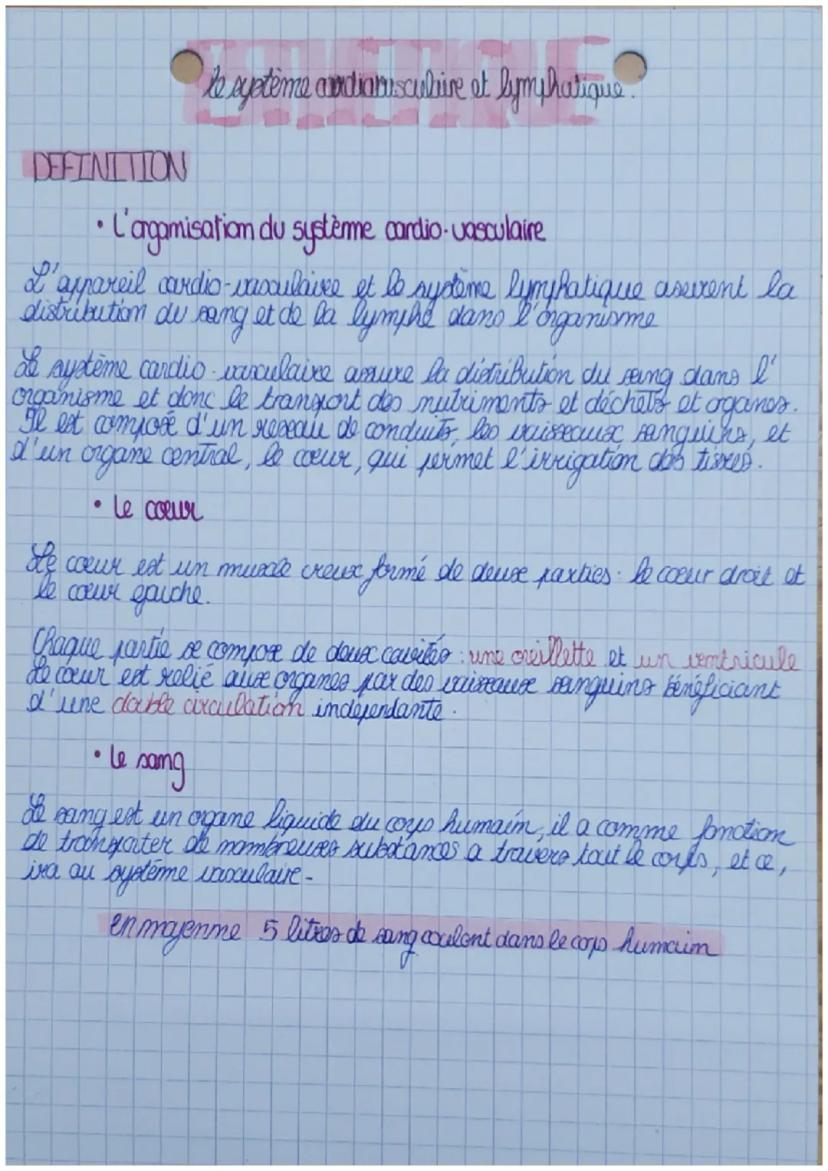 le système cardiovasculaire et lymphatique.
DEFINITION
• L'organisation du système cardio-vasculaire
L'appareil cardio-vasculaire et le système lymphatique assurent la
distribution du sang et de la lymphe dans l'organisme
Le système cardio-vasculaire assure la distribution du sang dans l'
organisme et donc le transport des nutriments et déchets et organes.
Il est composé d'un reseau de conduits, les vaisseaux sanguins, et
d'un organe central, le coeur, qui permet l'irrigation des tissus.
• Le coeur
Le coeur est un muscle creux formé de deux parties: le coeur droit et
le coeur gauche.
Chaque partie se compose de deux cavités : une oreillette et un ventricule
Le coeur est relié aux organes par des vaisseaux sanguins bénéficiant
d'une double circulation indépendante.
• Le sang
Le sang est un organe liquide du corps humain, il a comme fonction
de transporter de nombreuses substances a travers tout le corps, et ce,
via au système vasculaire.
en moyenne 5 litres de sang coulent dans le corps humain